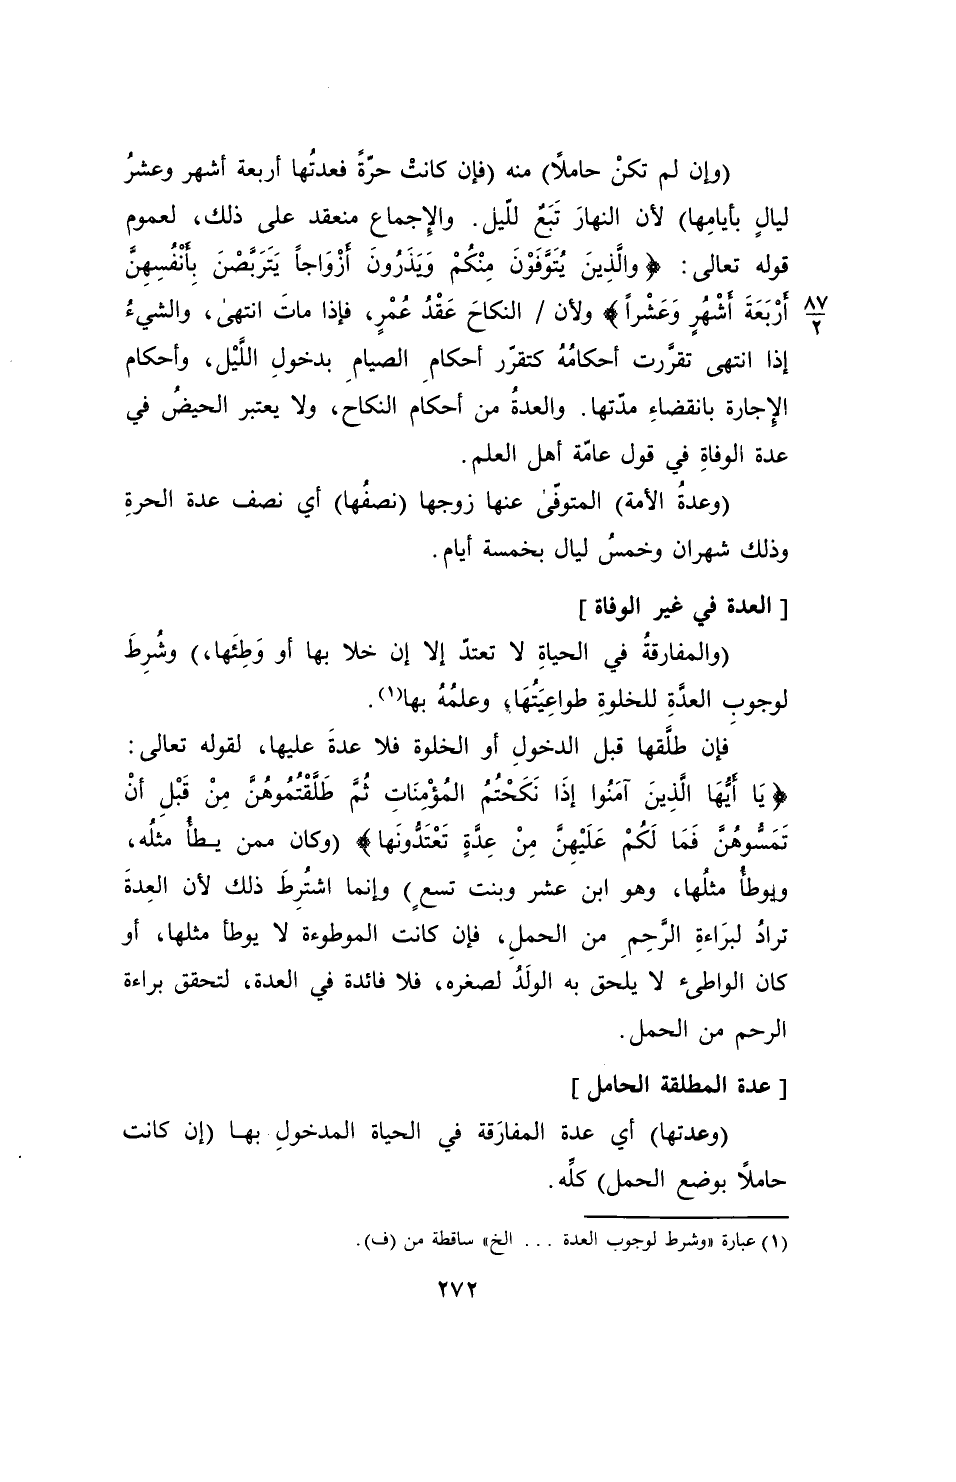 (وإن لم تكنْ حاملاً) منه (فإن كانتْ حرّةً فعدتُها أربعة أشهر وعشرُ
ليالٍ بأيامِها) لأن النهارَ تَبَعٌ للّيل. والإِجماع منعقد على ذلك، لعموم
قوله تعالى: ﴿والَّذِينَ يُتَوَّفَوْنَ مِنْكُمْ وَيَذَرُونَ أَزْوَاجاً يَتَرَبَّصْنَ بِأَنْفُسِهِنَّ
أَرْبَعَةَ أَشْهُرٍ وَعَشْراً﴾ ولأن / النكاحَ عَقْدُ عُمْرٍ، فإذا ماتَ انتهىٰ، والشيءُ
٨٧
٢
إذا انتهى تقرَّرت أحكامُهُ كتقرّر أحكامِ الصيامِ بدخولِ اللَّيْل، وأحكام
الإِجارة بانقضاءِ مدّتها. والعدةُ من أحكام النكاح، ولا يعتبر الحيضُ في
عدة الوفاةِ في قول عامّة أهل العلم.
(وعدةُ الأمة) المتوفّىٰ عنها زوجها (نصفُها) أي نصف عدة الحرةِ
وذلك شهران وخمسُ ليال بخمسة أيام.
[ العدة في غير الوفاة ]
(والمفارقةُ في الحياةِ لا تعتدّ إلا إن خلا بها أو وَطِئَها،) وشُرِطَ
لوجوبِ العدَّةِ للخلوةِ طواعِيَتُهَا، وعلمُهُ بها(١).
فإن طلَّقها قبل الدخولِ أو الخلوة فلا عدةَ عليها، لقوله تعالى:
﴿يَا أَيُّهَا الَّذِينَ آمَنُوا إذَا نَكَحْتُمُ المُؤْمِنَاتِ ثُمَّ طَلَّقْتُمُوهُنَّ مِنْ قَبْلِ أنْ
تَمَسُّوهُنَّ فَمَا لَكُمْ عَلَيْهِنَّ مِنْ عِدَّةٍ تَعْتَدُّونَها﴾ (وكان ممن يـطأُ مثلُه،
ويوطأُ مثلُها، وهو ابن عشر وبنت تسعٍ) وإنما اشتُرِطَ ذلك لأن العِدةَ
ترادُ لبرَاءةِ الرَّحِمِ من الحملِ، فإن كانت الموطوءة لا يوطأ مثلها، أو
كان الواطىء لا يلحق به الولَدُ لصغره، فلا فائدة في العدة، لتحقق براءة
الرحم من الحمل.
[ عدة المطلقة الحامل ]
(وعدتها) أي عدة المفارَقة في الحياة المدخولِ بهـا (إن كانت
حاملاً بوضع الحمل) كلِّه.
(١) عبارة «وشرط لوجوب العدة ... الخ» ساقطة من (ف).
٢٧٢